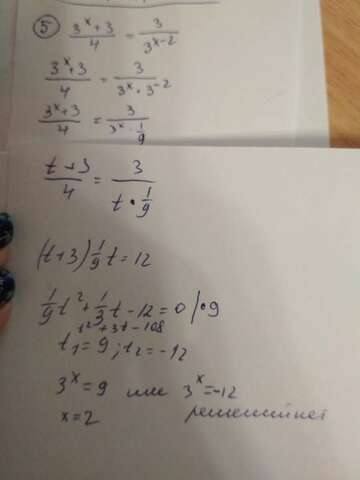 5 (3^x+3)/4 = 3/(3^(x-2))
(3^x+3)/4 = 3/(3^x · 3^-2)
(3^x+3)/4 = 3/(3^x · 1/9)
(t+3)/4 = 3/(t · 1/9)
(t+3) 1/9 t = 12
1/9 t² + 1/3 t - 12 = 0 | · 9
t² + 3t - 108
t₁ = 9; t₂ = -12
3^x = 9 или 3^x = -12
x = 2 решений нет